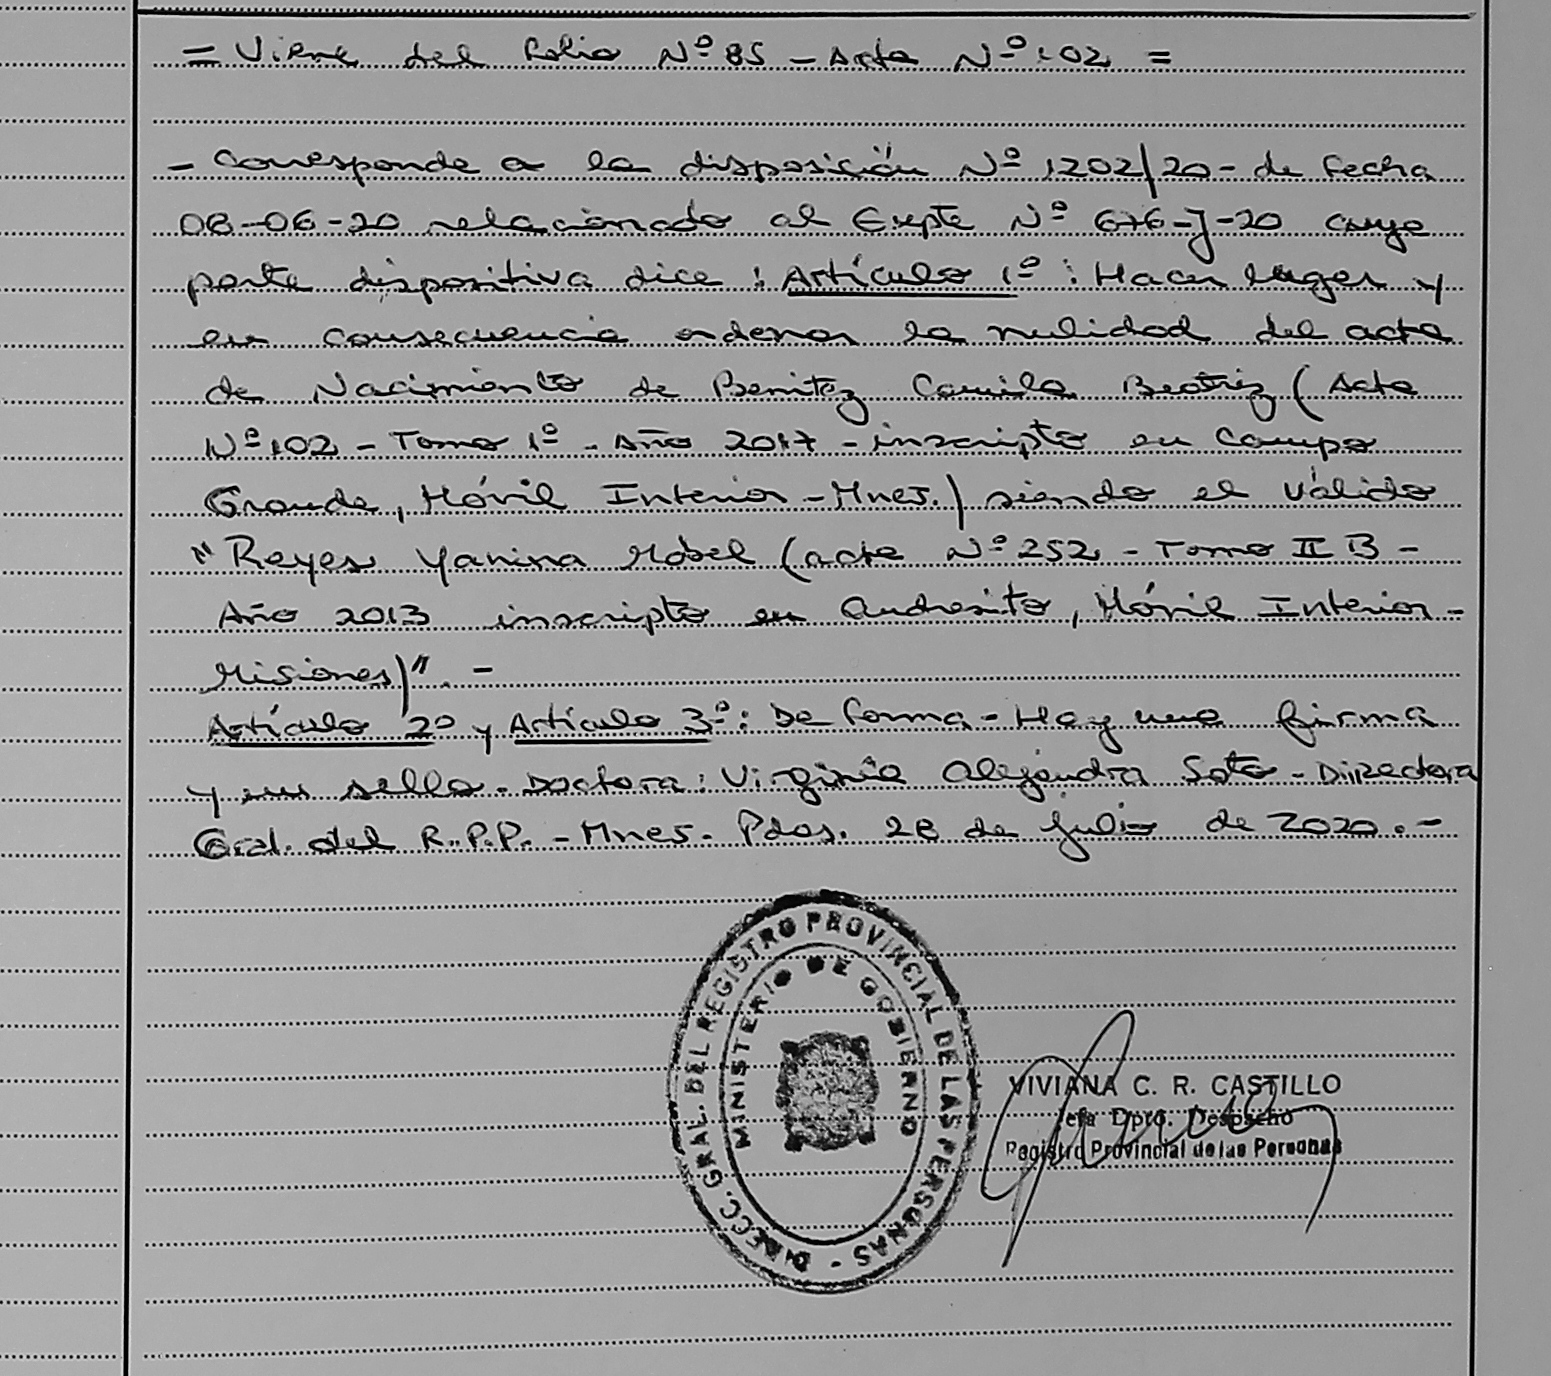 = Viene del Folio Nº 85 - Acta Nº 102 =
- Corresponde a la disposición Nº 1202/20 - de Fecha
08-06-20 relacionado al Expte Nº 676-J-20 cuya
parte dispositiva dice : Artículo 1º : Hacer lugar y
en consecuencia ordenar la nulidad del acta
de Nacimiento de Benitez Camila Beatriz ( Acta
Nº 102 - Tomo 1º - Año 2017 - inscripto en Campo
Grande, Móvil Interior - Mnes.) siendo el válido
"Reyes Yanina Mabel (acta Nº 252 - Tomo II B -
Año 2013 inscripto en Andresito, Móvil Interior -
Misiones)". -
Artículo 2º y Artículo 3º : De Forma - Hay una firma
y un sello - Doctora : Virginia Alejandra Soto - Directora
Gral. del R.P.P. - Mnes - Pdas. 28 de julio de 2020. -
DIRECC. GRAL. DEL REGISTRO PROVINCIAL DE LAS PERSONAS -
MINISTERIO DE GOBIERNO
VIVIANA C. R. CASTILLO
Jefa Dpto. Despacho
Registro Provincial de las Personas